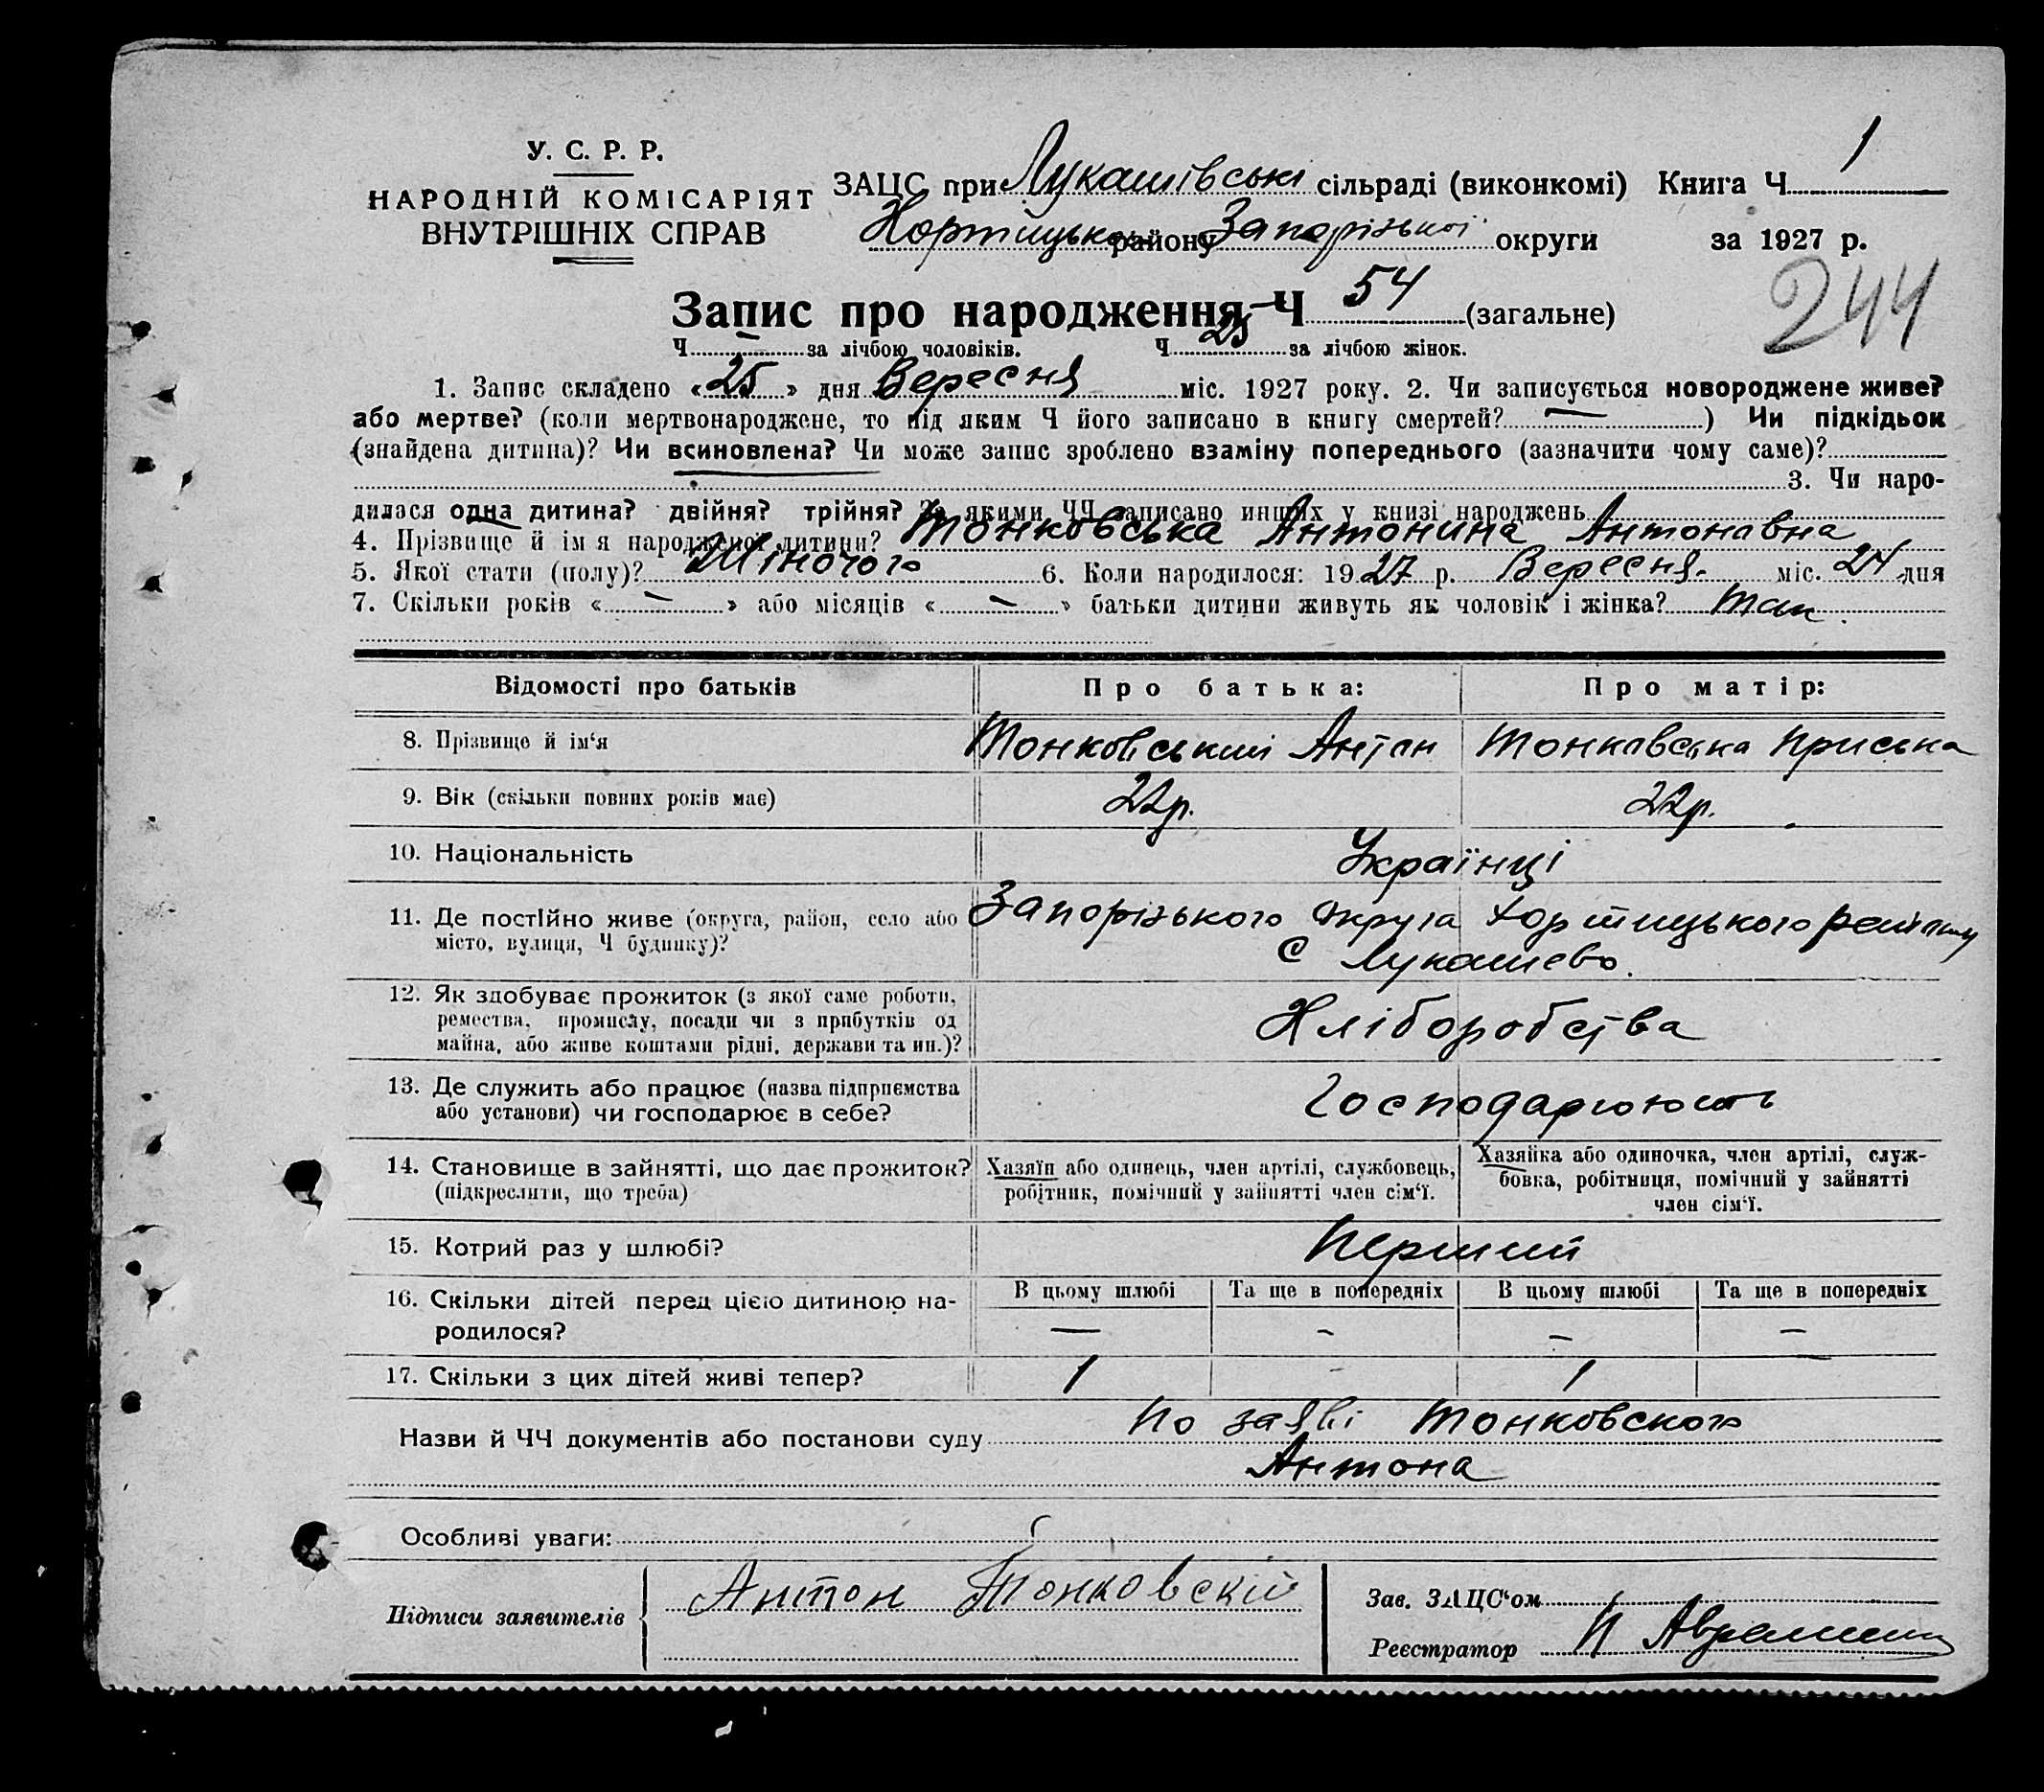 У. С. Р. Р.
НАРОДНІЙ КОМІСАРІЯТ
ВНУТРІШНІХ СПРАВ
ЗАЦС при Лукашівські сільраді (виконкомі) Книга Ч. 1
Хортицького району Запорізької округи за 1927 р.
244
Запис про народження Ч 54 (загальне)
Ч — за лічбою чоловіків. Ч 25 за лічбою жінок.
1. Запис складено «25» дня Вересня міс. 1927 року. 2. Чи записується новороджене живе?
або мертве? (коли мертвонароджене, то під яким Ч його записано в книгу смертей? — ) Чи підкідьок
(знайдена дитина)? Чи всиновлена? Чи може запис зроблено взаміну попереднього (зазначити чому саме)?
3. Чи наро-
дилася одна дитина? двійня? трійня? За якими ЧЧ записано инших у книзі народжень
4. Прізвище й ім я народженої дитини? Тонковська Антонина Антоновна
5. Якої стати (полу)? Жіночого 6. Коли народилося: 1927 р. Вересня міс. 24 дня
7. Скільки років « — » або місяців « — » батьки дитини живуть як чоловік і жінка? так.
Відомості про батьків Про батька: Про матір:
8. Прізвище й ім‘я Тонковський Антон Тонковська Приська
9. Вік (скільки повних років має) 22р. 22р.
10. Національність Українці
11. Де постійно живе (округа, район, село або Запорізького округа Хортицького району
місто, вулиця, Ч будинку)? С Лукашево.
12. Як здобуває прожиток (з якої саме роботи,
ремества, промислу, посади чи з прибутків од Хліборобства
майна, або живе коштами рідні, держави та ин.)?
13. Де служить або працює (назва підприємства Господарюють
або установи) чи господарює в себе?
14. Становище в зайнятті, що дає прожиток? Хазяїн або одинець, член артілі, службовець, Хазяйка або одиночка, член артілі, служ-
(підкреслити, що треба) робітник, помічний у зайнятті член сім‘ї. бовка, робітниця, помічний у зайнятті
член сім‘ї.
15. Котрий раз у шлюбі? Перший
16. Скільки дітей перед цією дитиною на- В цьому шлюбі Та ще в попередніх В цьому шлюбі Та ще в попередніх
родилося? — — — —
17. Скільки з цих дітей живі тепер? 1 - 1 —
Назви й ЧЧ документів або постанови суду По заяві Тонковского
Антона
Особливі уваги:
Підписи заявителів Антон Тонковскій Зав. ЗАЦС‘ом
Реєстратор